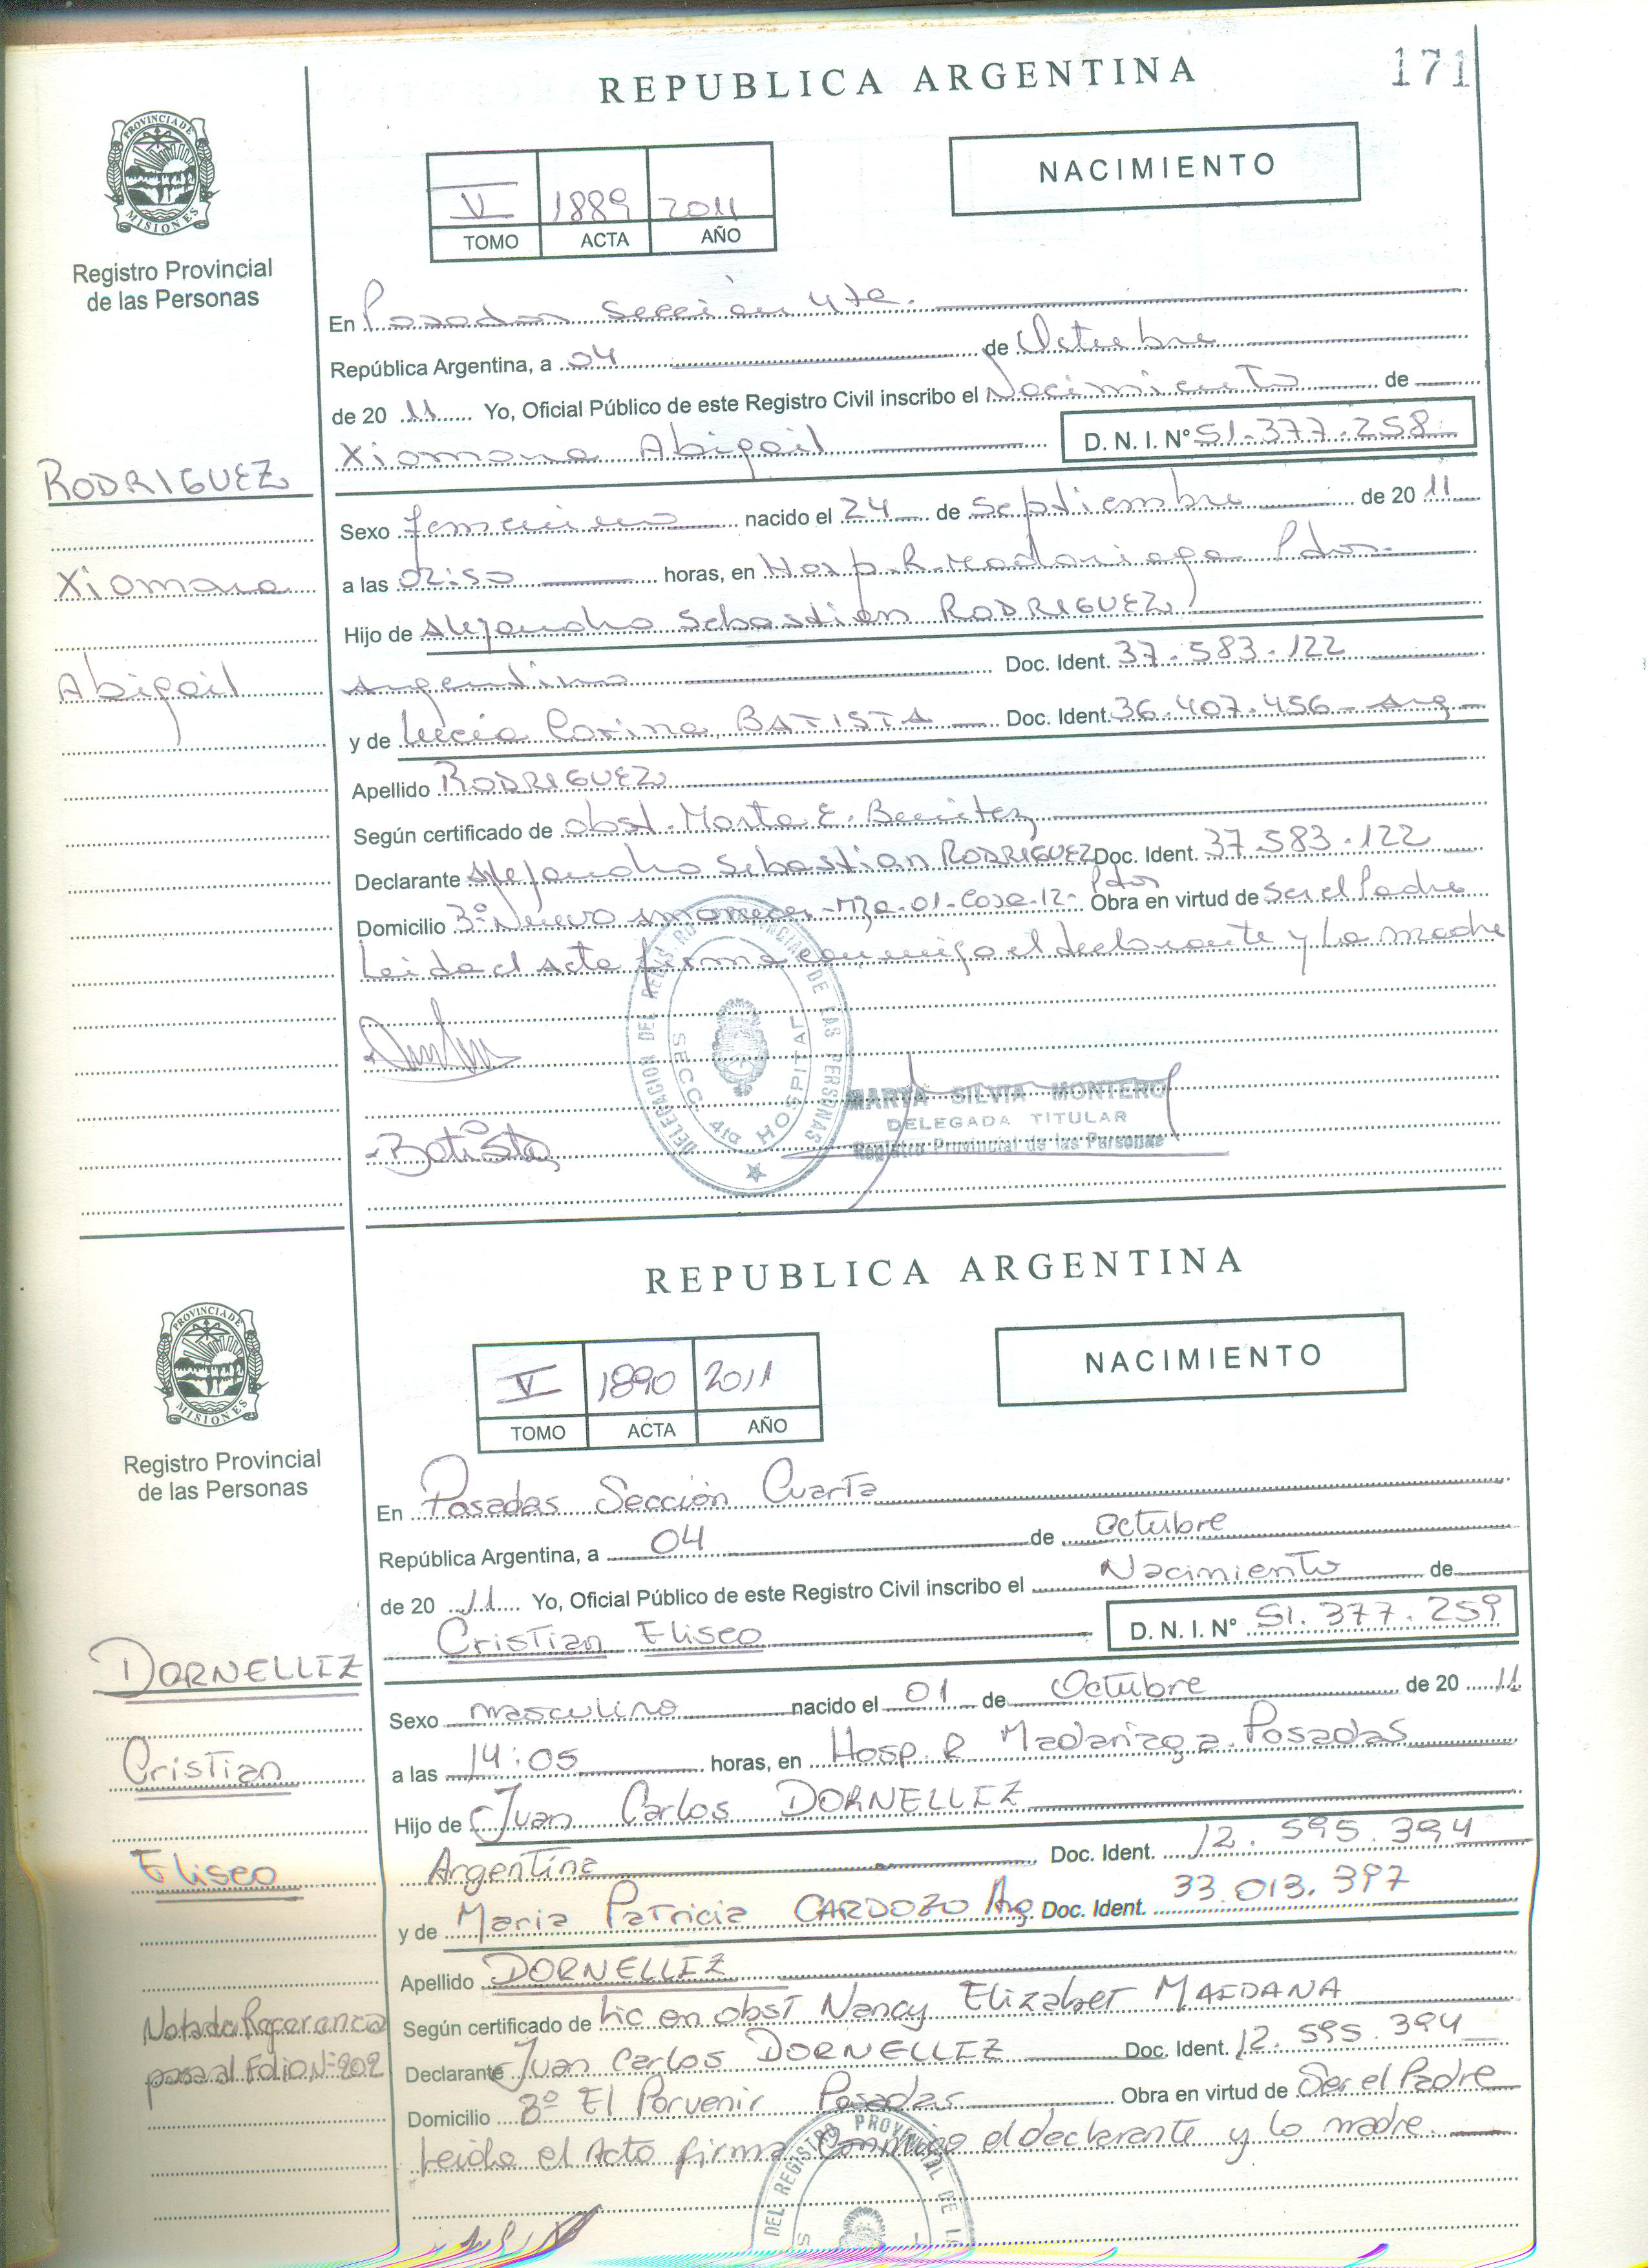 171
REPUBLICA ARGENTINA
PROVINCIA DE
MISIONES
Registro Provincial
de las Personas
NACIMIENTO
V 1889 2011
TOMO ACTA AÑO
En Posadas Sección 4ta.
República Argentina, a 04 de Octubre
de 20 11 Yo, Oficial Público de este Registro Civil inscribo el Nacimiento de
Xiomara Abigail D. N. I. Nº 51.377.258
RODRIGUEZ
Xiomara
Abigail
Sexo femenino nacido el 24 de Septiembre de 20 11
a las 02:50 horas, en Hosp. R. Madariaga Pdas.
Hijo de Alejandro Sebastián RODRIGUEZ
Argentino Doc. Ident. 37.583.122
y de Lucía Corina BATISTA Doc. Ident. 36.407.456 - Arg
Apellido RODRIGUEZ
Según certificado de obst. Marta E. Benitez
Declarante Alejandro Sebastian RODRIGUEZ Doc. Ident. 37.583.122
Domicilio Bº Nuevo Amanecer - Mza. 01 - Casa - 12 - Pdas Obra en virtud de Ser el Padre
Leida el Acta firma conmigo el declarante y la madre
DELEGACION DEL REGISTRO PROVINCIAL DE LAS PERSONAS
SECC. 4ta HOSPITAL
MARTA SILVIA MONTERO
DELEGADA TITULAR
Registro Provincial de las Personas
Batista
REPUBLICA ARGENTINA
PROVINCIA DE
MISIONES
Registro Provincial
de las Personas
NACIMIENTO
V 1890 2011
TOMO ACTA AÑO
En Posadas Sección Cuarta
República Argentina, a 04 de Octubre
de 20 11 Yo, Oficial Público de este Registro Civil inscribo el Nacimiento de
Cristian Eliseo D. N. I. Nº 51.377.259
DORNELLEZ
Cristian
Eliseo
Sexo masculino nacido el 01 de Octubre de 20 11
a las 14:05 horas, en Hosp R Madariaga. Posadas
Hijo de Juan Carlos DORNELLEZ
Argentina Doc. Ident. 12.595.394
y de Maria Patricia CARDOZO Arg Doc. Ident. 33.013.397
Apellido DORNELLEZ
Según certificado de Lic en obst Nancy Elizabet MAIDANA
Declarante Juan Carlos DORNELLEZ Doc. Ident. 12.595.394
Domicilio Bº El Porvenir Posadas Obra en virtud de Ser el Padre
Leida el Acto firma Conmigo el declarante y la madre.
Nota de Referencia
pasa al Folio Nº 202
DEL REGISTRO PROVINCIAL DE